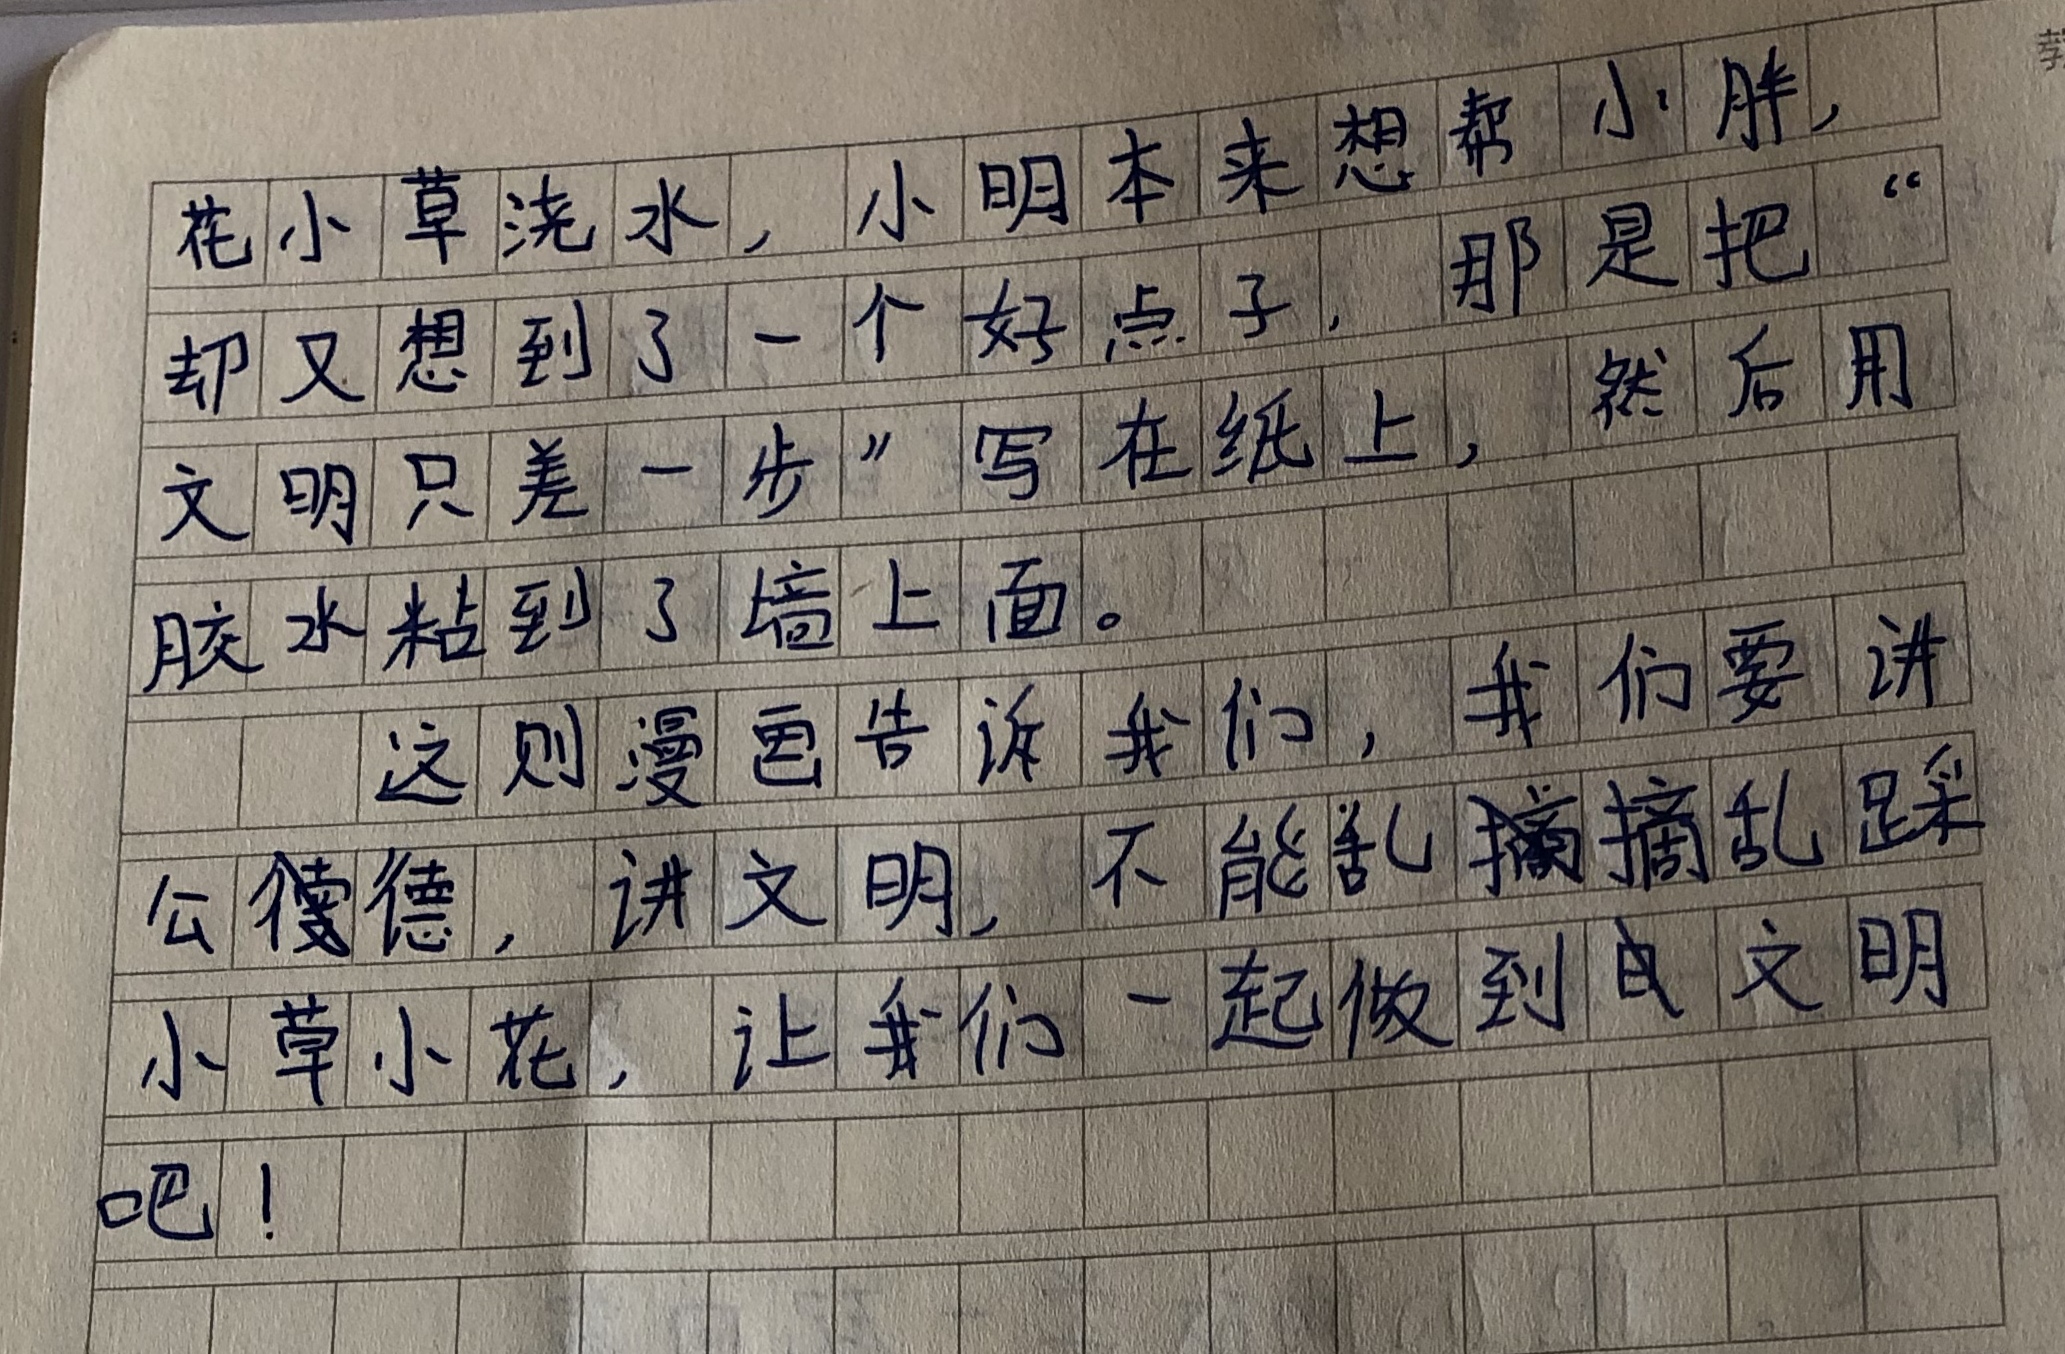 花小草浇水，小明本来想帮小胖，
却又想到了一个好点子，那是把“
文明只差一步”写在纸上，然后用
胶水粘到了墙上面。
这则漫画告诉我们，我们要讲
公德，讲文明，不能乱摘乱踩
小草小花，让我们一起做到文明
吧！